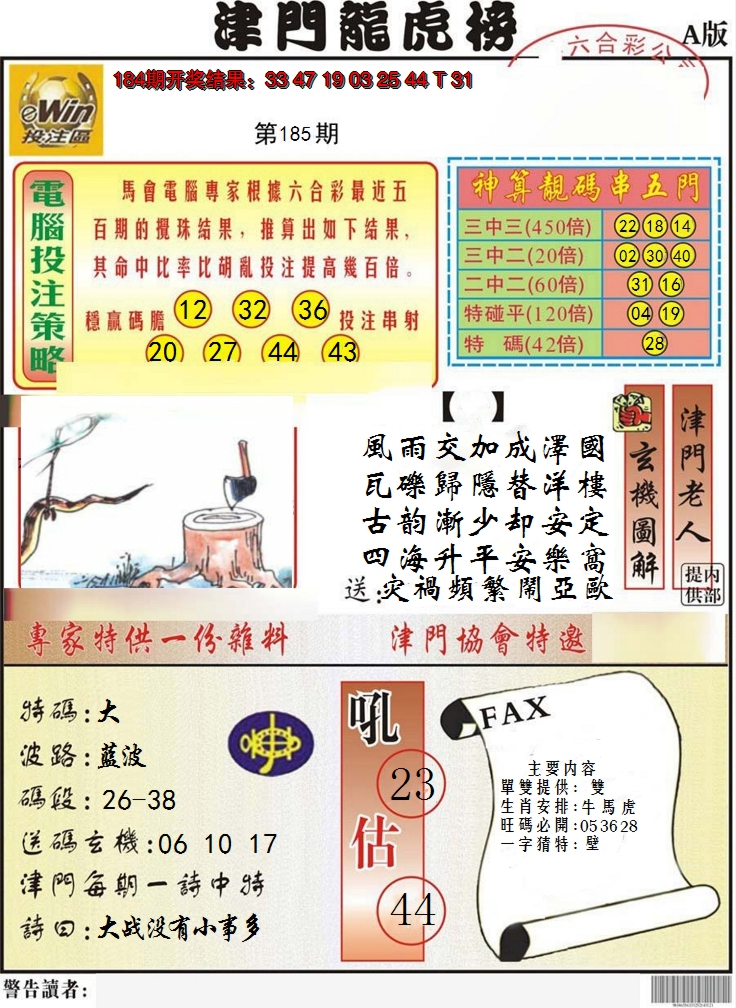 津門龍虎榜
六合彩公
A版
eWin
投注區
184期开奖结果：33 47 19 03 25 44 T 31
第185期
電腦投注策略
馬會電腦專家根據六合彩最近五
百期的攪珠结果，推算出如下结果，
其命中比率比胡亂投注提高幾百倍。
穩贏碼膽 12 32 36 投注串射
20 27 44 43
神算靚碼串五門
三中三(450倍) 22 18 14
三中二(20倍) 02 30 40
二中二(60倍) 31 16
特碰平(120倍) 04 19
特 碼(42倍) 28
【 】
風雨交加成澤國
瓦礫歸隱替洋樓
古韵漸少却安定
四海升平安樂窩
送:灾禍頻繁鬧亞歐
玄機圖解
津門老人
内部提供
專家特供一份雜料
津門協會特邀
特碼:大
波路:藍波
碼段:26-38
送碼玄機:06 10 17
津門每期一詩中特
詩曰:大战没有小事多
吼
23
估
44
FAX
主要内容
單雙提供: 雙
生肖安排:牛馬虎
旺碼必開:053628
一字猜特: 壁
警告讀者: